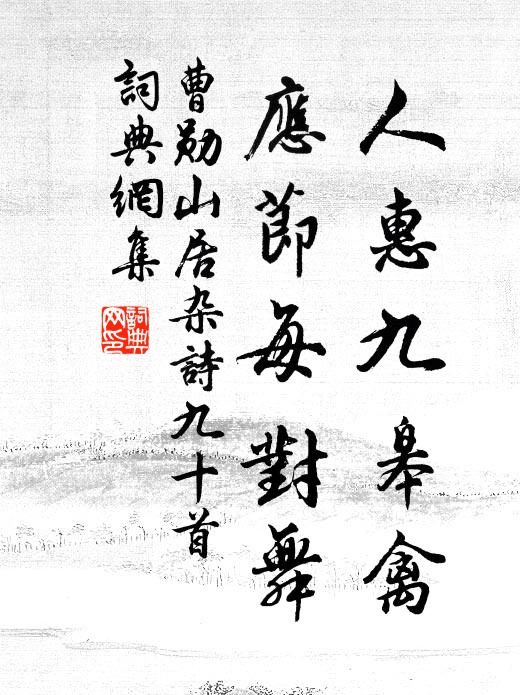 人惠九皋禽
應節每對舞
曹勛山居杂詩九十首
詞典網集
詞典
网印